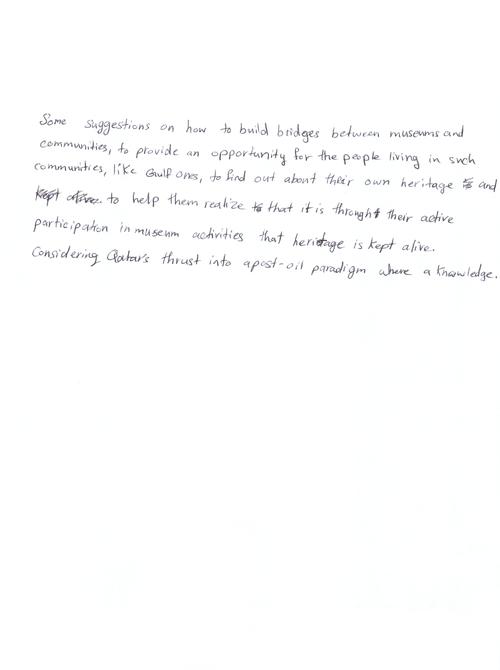 Some suggestions on how to build bridges between museums and
communities, to provide an opportunity for the people living in such
communities, like Gulf ones, to find out about their own heritage and
to help them realize that it is throught their active
participation in museum activities that heritage is kept alive.
Considering Qatar's thrust into a post-oil paradigm where a knowledge.